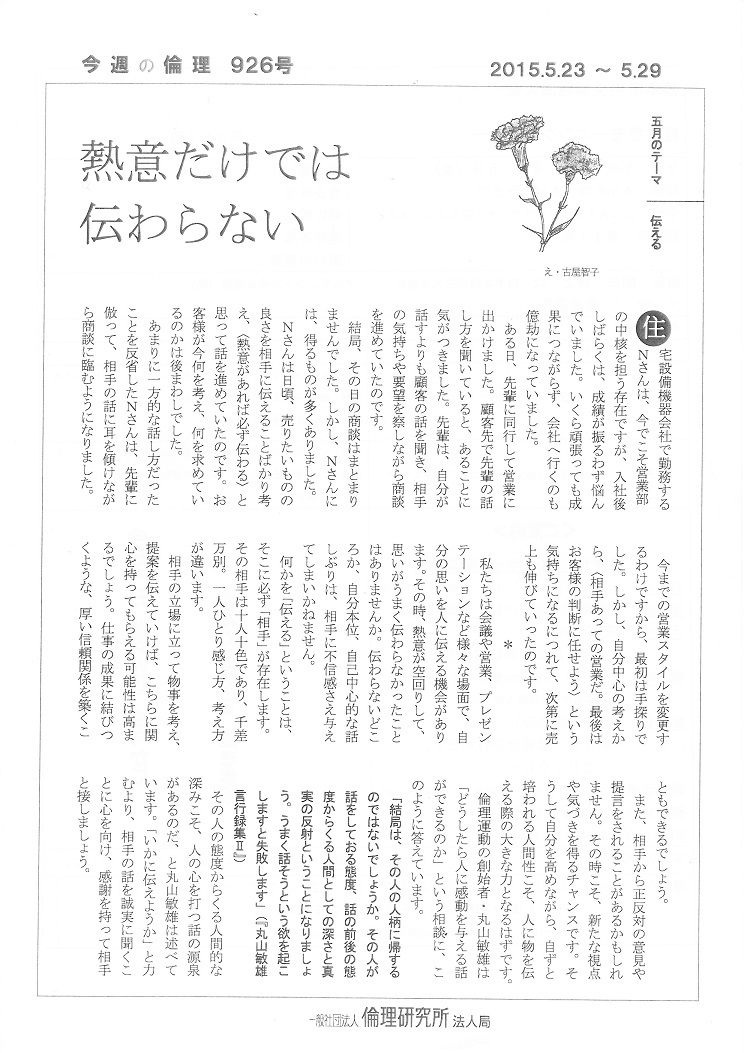 今週の倫理 926号
2015.5.23 ～ 5.29
五月のテーマ 伝える
え・古屋智子
熱意だけでは
伝わらない
住宅設備機器会社で勤務する
Nさんは、今でこそ営業部
の中核を担う存在ですが、入社後
しばらくは、成績が振るわず悩ん
でいました。いくら頑張っても成
果につながらず、会社へ行くのも
億劫になっていました。
ある日、先輩に同行して営業に
出かけました。顧客先で先輩の話
し方を聞いていると、あることに
気がつきました。先輩は、自分が
話すよりも顧客の話を聞き、相手
の気持ちや要望を察しながら商談
を進めていたのです。
結局、その日の商談はまとまり
ませんでした。しかし、Nさんに
は、得るものが多くありました。
Nさんは日頃、売りたいものの
良さを相手に伝えることばかり考
え、〈熱意があれば必ず伝わる〉と
思って話を進めていたのです。お
客様が今何を考え、何を求めてい
るのかは後まわしでした。
あまりに一方的な話し方だった
ことを反省したNさんは、先輩に
倣って、相手の話に耳を傾けなが
ら商談に臨むようになりました。
今までの営業スタイルを変更す
るわけですから、最初は手探りで
した。しかし、自分中心の考えか
ら、〈相手あっての営業だ。最後は
お客様の判断に任せよう〉という
気持ちになるにつれて、次第に売
上も伸びていったのです。
＊
私たちは会議や営業、プレゼン
テーションなど様々な場面で、自
分の思いを人に伝える機会があり
ます。その時、熱意が空回りして、
思いがうまく伝わらなかったこと
はありませんか。伝わらないどこ
ろか、自分本位、自己中心的な話
しぶりは、相手に不信感さえ与え
てしまいかねません。
何かを「伝える」ということは、
そこに必ず「相手」が存在します。
その相手は十人十色であり、千差
万別。一人ひとり感じ方、考え方
が違います。
相手の立場に立って物事を考え、
提案を伝えていけば、こちらに関
心を持ってもらえる可能性は高ま
るでしょう。仕事の成果に結びつ
くような、厚い信頼関係を築くこ
ともできるでしょう。
また、相手から正反対の意見や
提言をされることがあるかもしれ
ません。その時こそ、新たな視点
や気づきを得るチャンスです。そ
うして自分を高めながら、自ずと
培われる人間性こそ、人に物を伝
える際の大きな力となるはずです。
倫理運動の創始者・丸山敏雄は
「どうしたら人に感動を与える話
ができるのか」という相談に、こ
のように答えています。
「結局は、その人の人柄に帰する
のではないでしょうか。その人が
話をしておる態度、話の前後の態
度からくる人間としての深さと真
実の反射ということになりましょ
う。うまく話そうという欲を起こ
しますと失敗します」（『丸山敏雄
言行録集Ⅱ』）
その人の態度からくる人間的な
深みこそ、人の心を打つ話の源泉
があるのだ、と丸山敏雄は述べて
います。「いかに伝えようか」と力
むより、相手の話を誠実に聞くこ
とに心を向け、感謝を持って相手
と接しましょう。
一般社団法人 倫理研究所 法人局